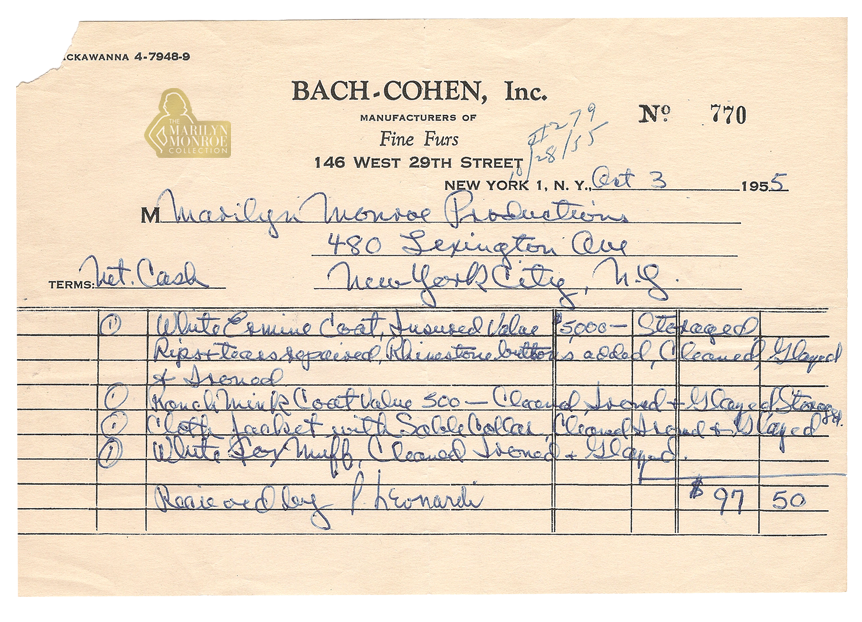 CKAWANNA 4-7948-9
BACH-COHEN, Inc.
MANUFACTURERS OF
Fine Furs
146 WEST 29TH STREET
No 770
#279
10/28/55
NEW YORK 1, N. Y., Oct 3 1955
THE
MARILYN
MONROE
COLLECTION
M Marilyn Monroe Productions
480 Lexington Ave
TERMS: Net. Cash New York City, N.Y.
1 White Ermine Coat, Insured Value $5000— Storaged,
Rips + tears repaired, Rhinestone buttons added, Cleaned, Glazed
+ Ironed
1 Mink Coat Value 500 — Cleaned, Ironed + Glazed Storaged.
1 Cloth Jacket with Sable Collar, Cleaned Ironed + Glazed
1 White Fox Muff, Cleaned Ironed + Glazed.
Recieved by P. Leonardi $97 50